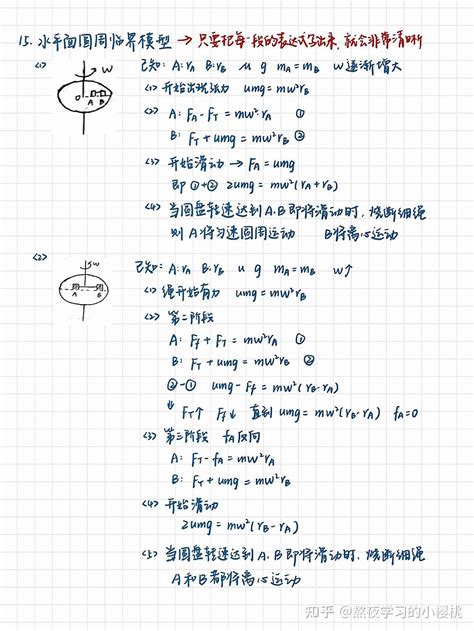 15. 水平面圆周临界模型 → 只要把每一段的表达式写出来,就会非常清晰
(1) 已知: A: rA B: rB μ g mA=mB ω逐渐增大
ω
O
A B
(1) 开始出现张力 μmg=mω²rB
(2) A: FA-FT=mω²rA ①
B: FT+μmg=mω²rB ②
(3) 开始滑动 → FA=μmg
即 ①+② 2μmg=mω²(rA+rB)
(4) 当圆盘转速达到A.B即将滑动时,烧断细绳
则A将匀速圆周运动 B将离心运动
(2) 已知: A: rA B: rB μ g mA=mB ω↑
ω
A B
(1) 绳开始有力 μmg=mω²rB
(2) 第二阶段
A: Ff+FT=mω²rA ①
B: FT+μmg=mω²rB ②
②-① μmg-Ff=mω²(rB-rA)
↓ FT↑ Ff↓ 直到μmg=mω²(rB-rA) fA=0
(3) 第三阶段 fA反向
A: FT-fA=mω²rA
B: FT+μmg=mω²rB
(4) 开始滑动
2μmg=mω²(rB-rA)
(5) 当圆盘转速达到A.B即将滑动时,烧断细绳
A和B都将离心运动
知乎 @熬夜学习的小樱桃